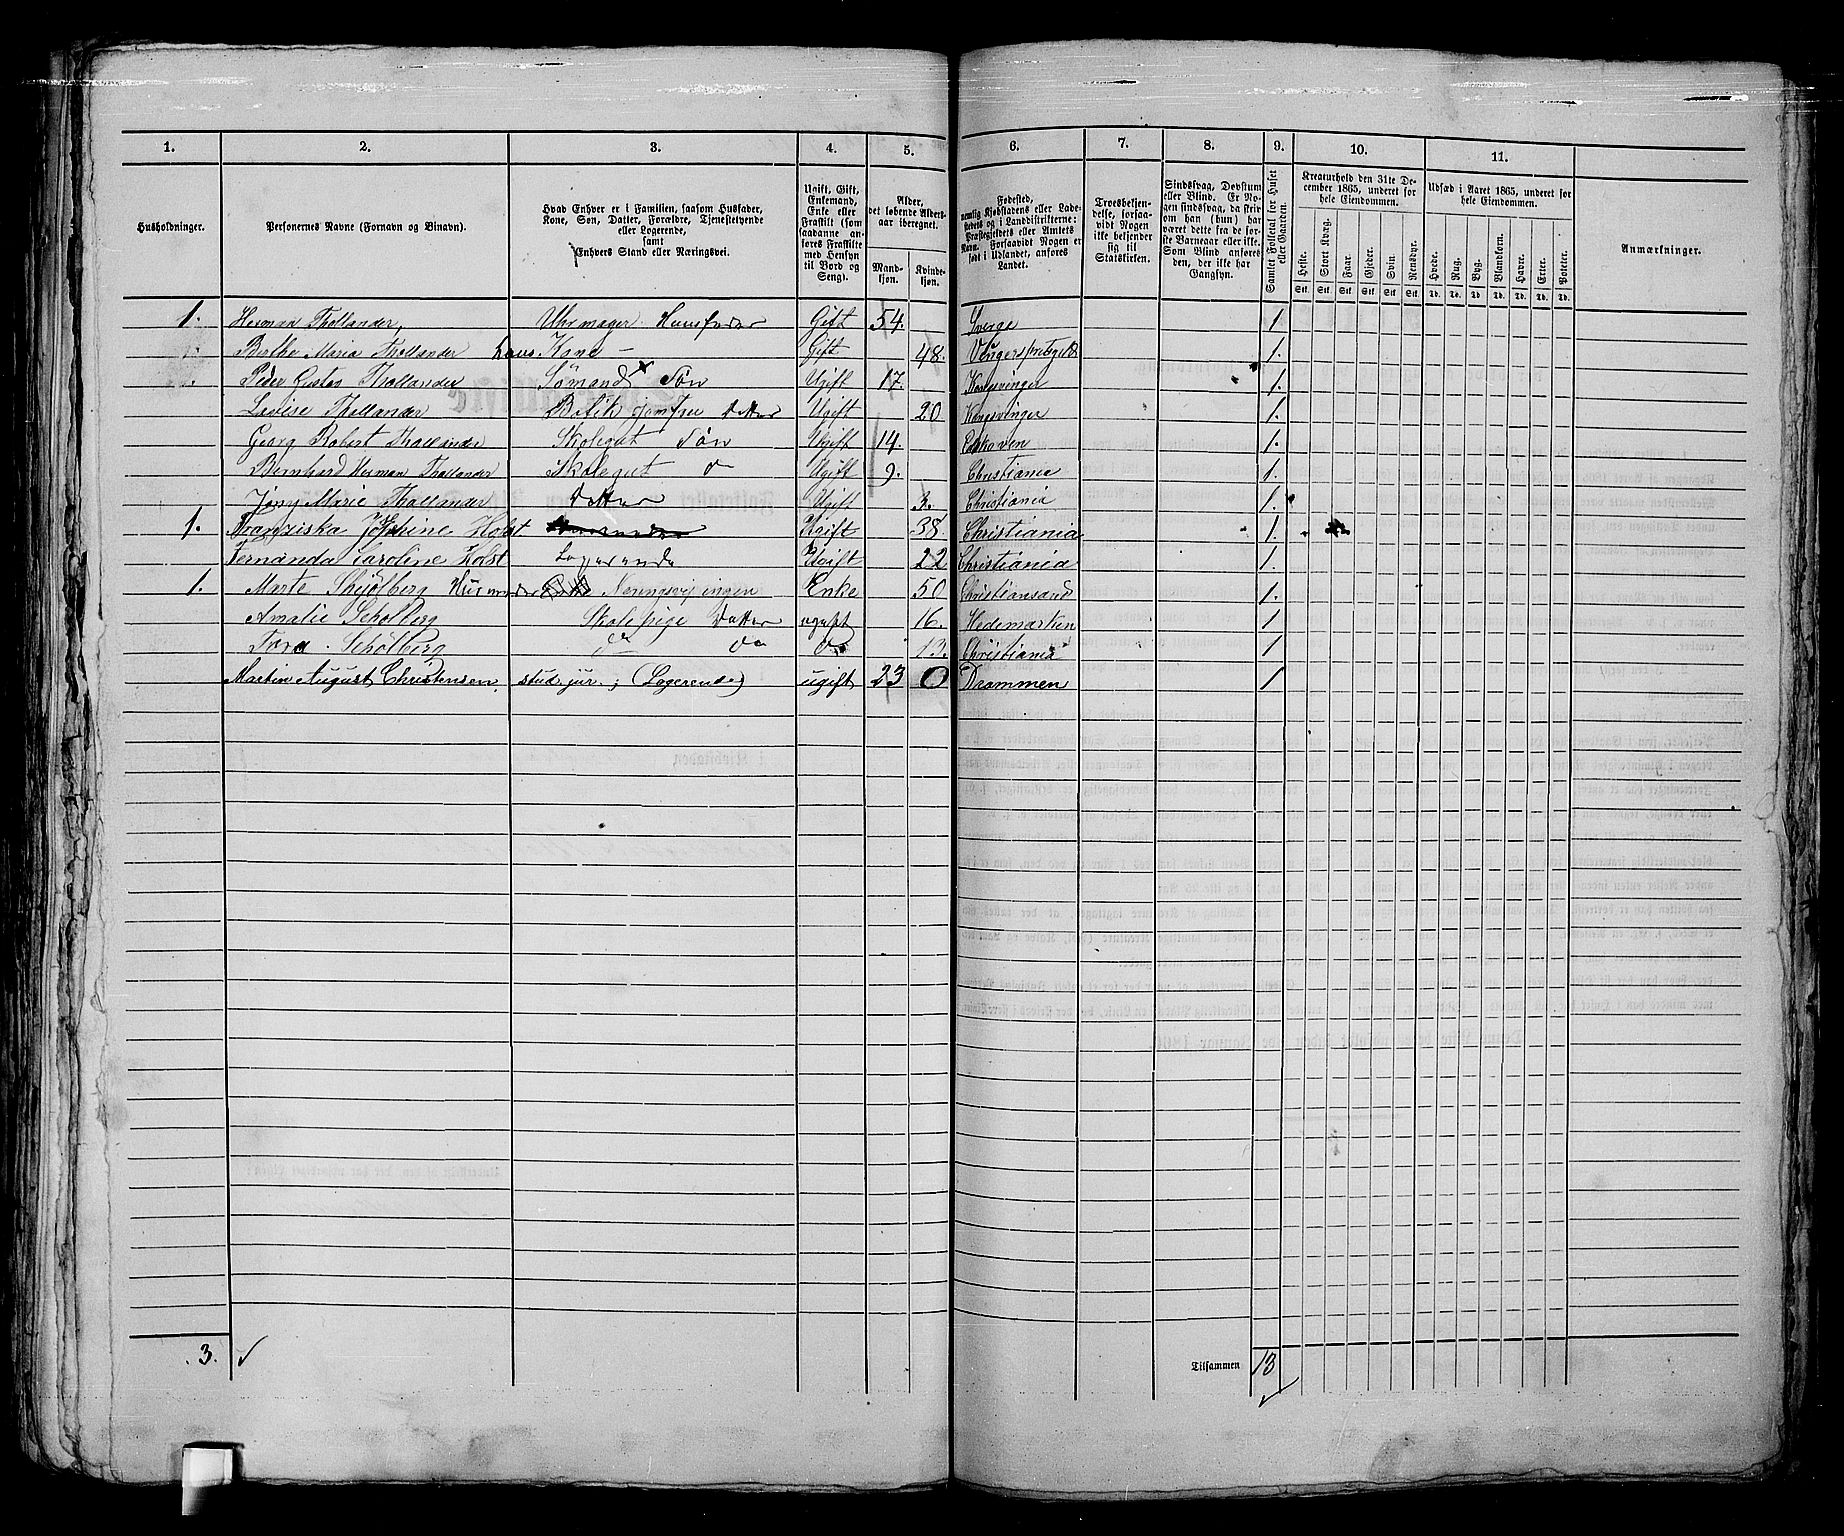 1. 2. 3. 4. 5. 6. 7. 8. 9. 10. 11.
Husholdninger.
Personernes Navne (Fornavn og Binavn).
Hvad Enhver er i Familien, saasom Husfader,
Kone, Søn, Datter, Forældre, Tjenestetyende
eller Logerende,
samt
Enhvers Stand eller Næringsvei.
Ugift, Gift,
Enkemand,
Enke eller
Fraskilt (som
saadanne an-
føres Fraskilte
med Hensyn
til Bord og
Seng).
Alder,
det løbende Alders-
aar iberegnet.
Mand-
kjøn.
Kvinde-
kjøn.
Fødested,
nemlig Kjøbstadens eller Lade-
stedets og i Landdistrikterne:
Præstegjeldets eller Amtets
Navn. Forsaavidt Nogen er
født i Udlandet, anføres
Landet.
Troesbekjen-
delse, forsaa-
vidt Nogen
ikke bekjender
sig til
Statskirken.
Sindssvag, Døvstum
eller Blind. Er No-
gen sindssvag, da skriv
om han (hun) har
været dette fra de før-
ste Barneaar eller ikke.
Som Blind anføres
den, der ikke har
Gangsyn.
Samlet Folketal for Huset
eller Gaarden.
Kreaturhold den 31te De-
cember 1865, underet for
hele Eiendommen.
Heste. Stort Kvæg. Faar. Gjeder. Svin. Rensdyr.
Stk. Stk. Stk. Stk. Stk. Stk.
Udsæd i Aaret 1865, underet for
hele Eiendommen.
Hvede. Rug. Byg. Blandkorn. Havre. Erter. Poteter.
Td. Td. Td. Td. Td. Td. Td.
Anmærkninger.
1. Herman Thollander, Uhrmager Huusfader Gift 54. Sverge 1
Berthe Maria Thollander hans Kone – Gift 48. 1.
Peder Gustav Thollander Sømand Søn Ugift 17. Kongsvinger 1.
Lovise Thollander Butik jomfru Datter Ugift 20 Kongsvinger 1.
Georg Robert Thollander Skolegut Søn Ugift 14. 1.
Bernhard Herman Thollander Skolegut Ugift 9. Christiania 1.
Marie Thollander Datter Ugift 3. Christiania 1.
1. Franziska Josephine Holst Ugift 38. Christiania 1.
Fernanda Caroline Holst Logerende Ugift 22 Christiania 1.
1. Marte Enke 50 Christiansand 1.
Amalie Schølberg Skolepige Datter ugift 16. Hedemarken 1
Tora Schølberg do do do 13. Christiania 1
Martin August Christensen. stud. jur; (Logerende) ugift 23 0 Drammen 1
3.
Tilsammen 13